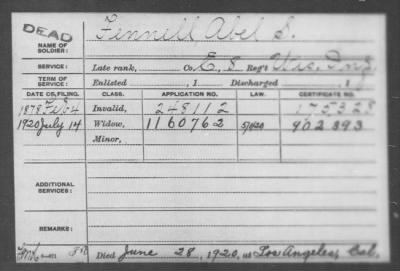 DEAD
NAME OF SOLDIER: Fennell Abel S.
SERVICE: Late rank, Co. E, 8 Reg't Wis. Inf.
TERM OF SERVICE: Enlisted , 1 Discharged , 1
DATE OF FILING. CLASS. APPLICATION NO. LAW. CERTIFICATE NO.
1878 Feb 4 Invalid, 248112 175328
1920 July 14 Widow, 1160762 902393
Minor,
ADDITIONAL SERVICES:
REMARKS:
Died June 28, 1920, at Los Angeles, Cal.